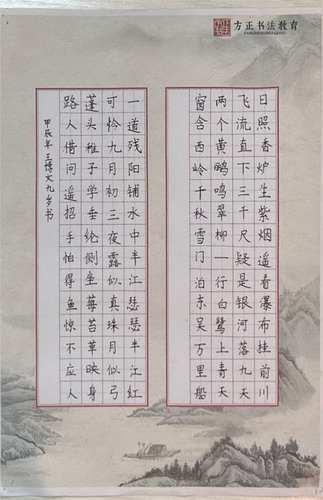 方正书法教育
日照香炉生紫烟遥看瀑布挂前川
飞流直下三千尺疑是银河落九天
两个黄鹂鸣翠柳一行白鹭上青天
窗含西岭千秋雪门泊东吴万里船
一道残阳铺水中半江瑟瑟半江红
可怜九月初三夜露似真珠月似弓
蓬头稚子学垂纶侧坐莓苔草映身
路人借问遥招手怕得鱼惊不应人
甲辰年 王博文九岁书